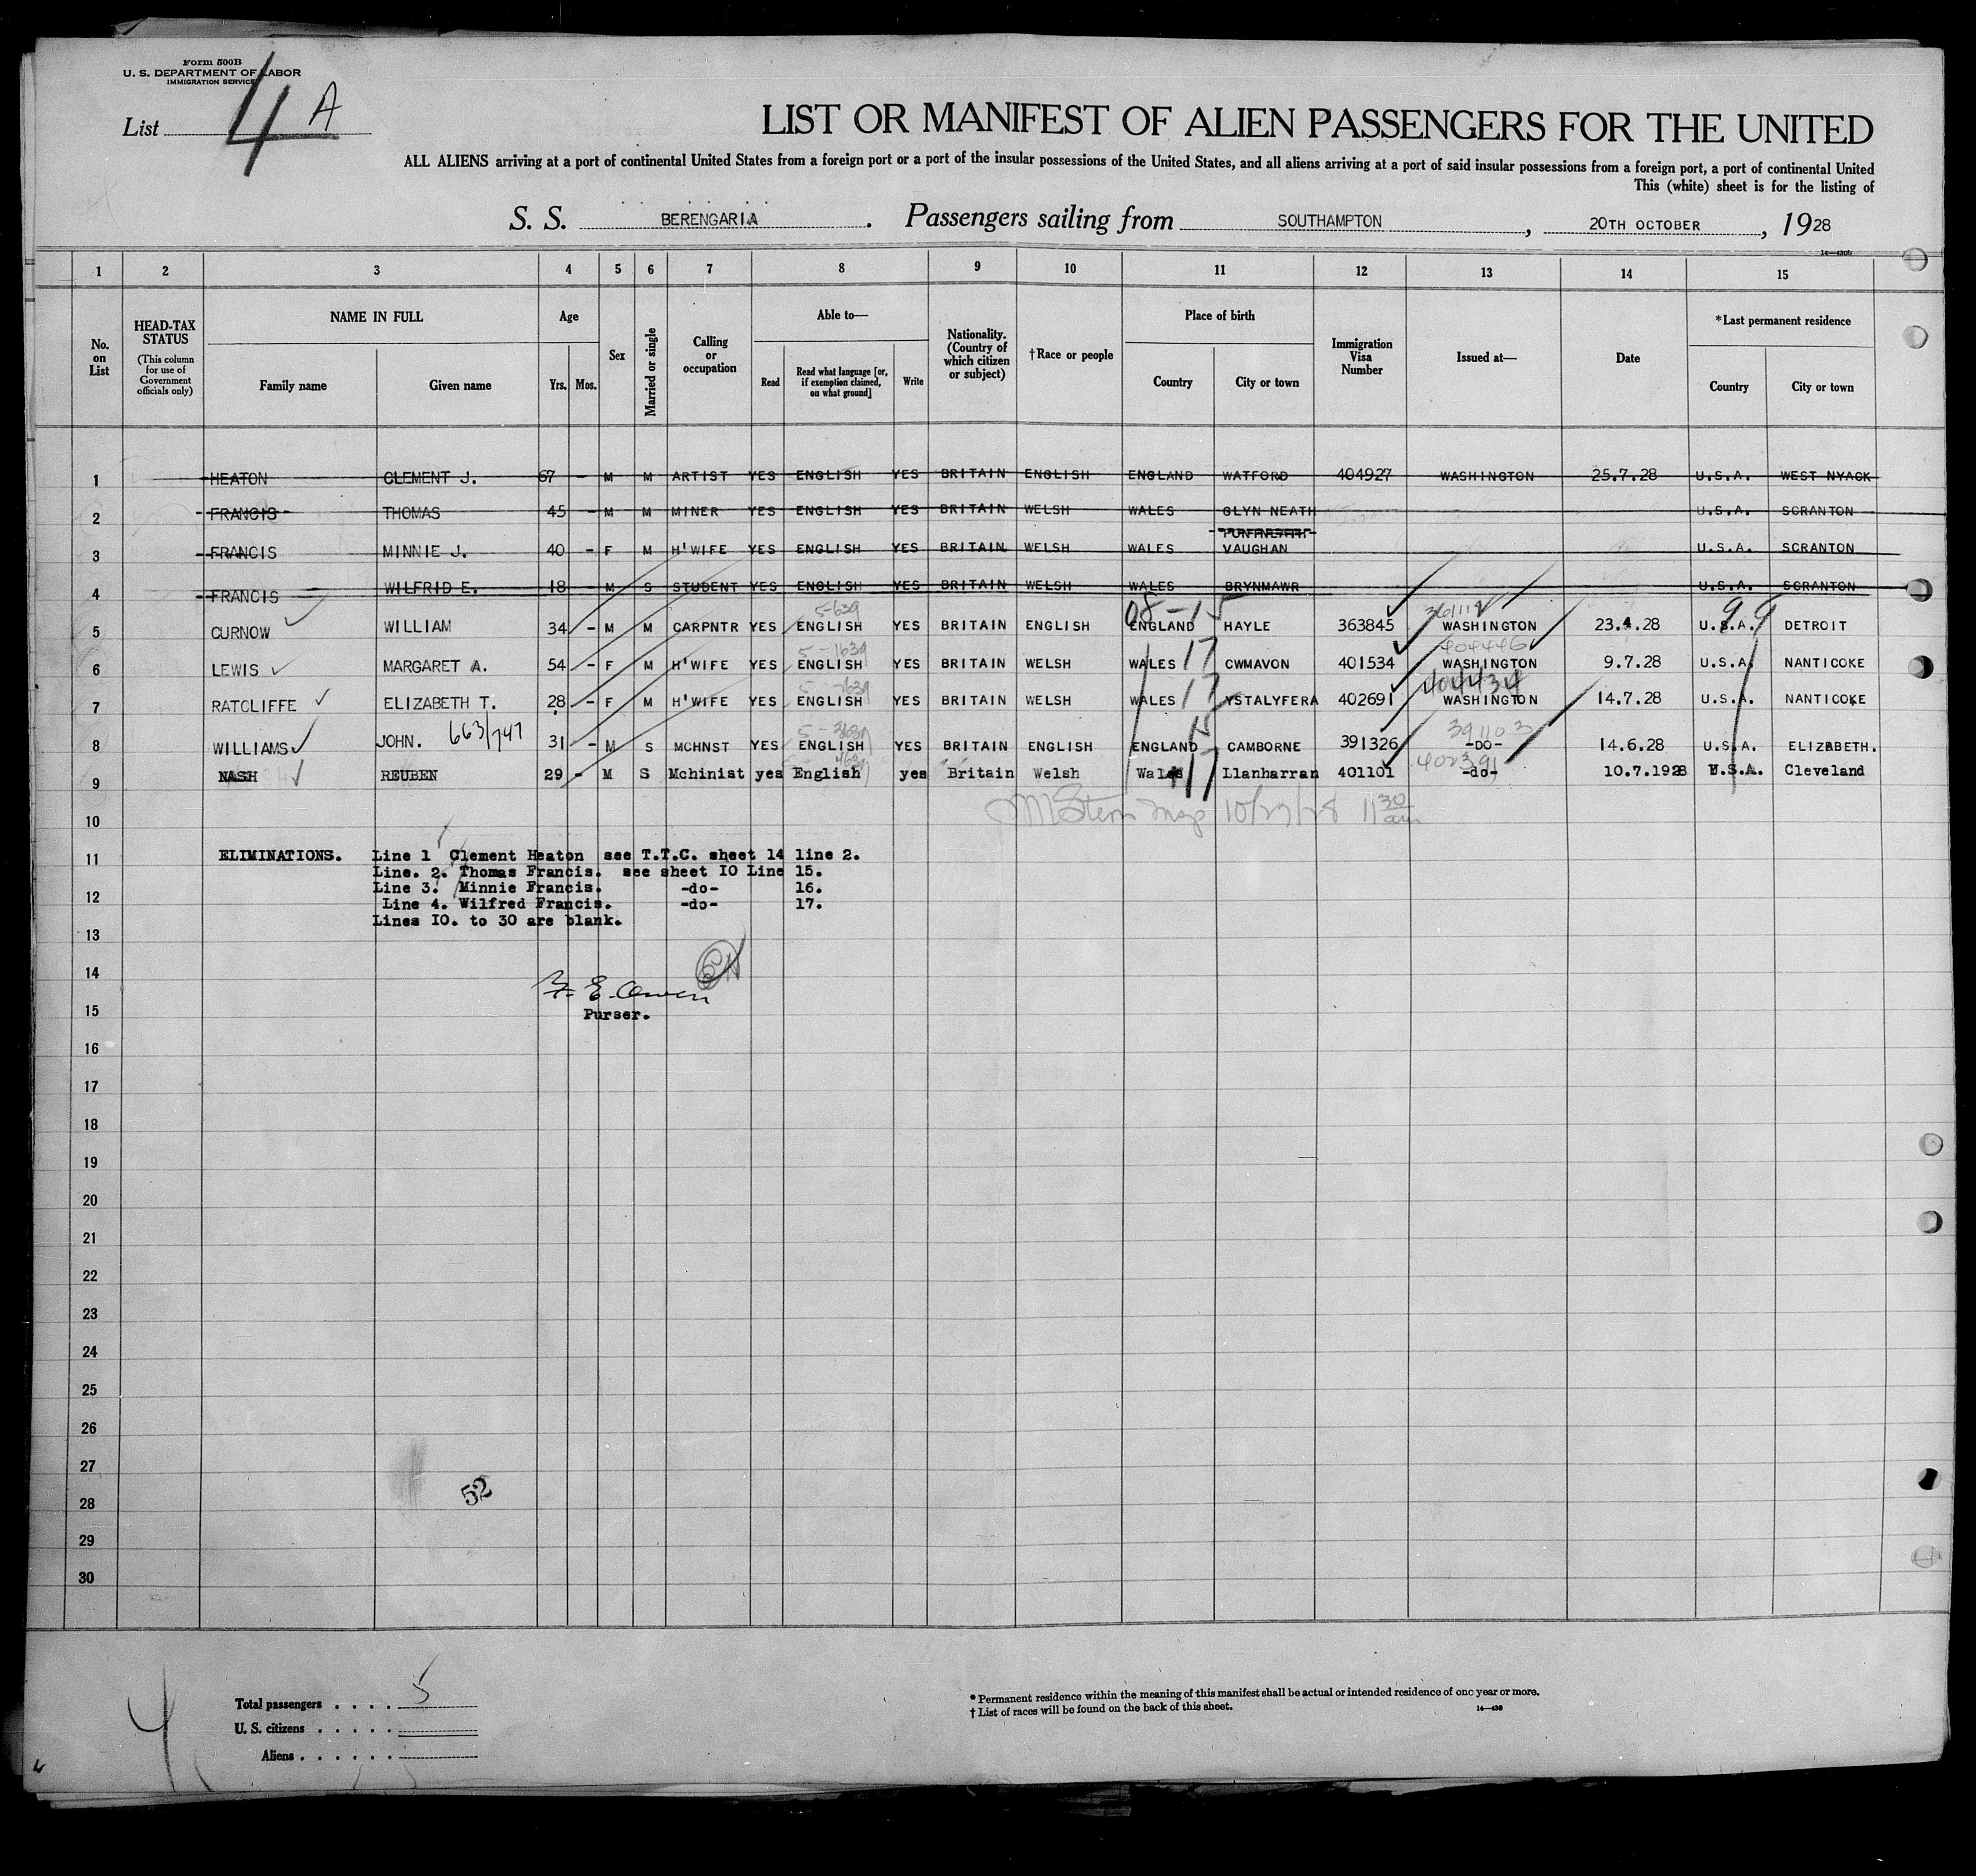 Form 500B
U. S. DEPARTMENT OF LABOR
IMMIGRATION SERVICE
List 4 A
LIST OR MANIFEST OF ALIEN PASSENGERS FOR THE UNITED
ALL ALIENS arriving at a port of continental United States from a foreign port or a port of the insular possessions of the United States, and all aliens arriving at a port of said insular possessions from a foreign port, a port of continental United
This (white) sheet is for the listing of
S. S. BERENGARIA. Passengers sailing from SOUTHAMPTON, 20TH OCTOBER, 1928
14—430b
1 2 3 4 5 6 7 8 9 10 11 12 13 14 15
No. on List
HEAD-TAX STATUS
(This column for use of Government officials only)
NAME IN FULL
Family name Given name
Age
Yrs. Mos.
Sex
Married or single
Calling or occupation
Able to—
Read Read what language [or, if exemption claimed, on what ground] Write
Nationality. (Country of which citizen or subject)
†Race or people
Place of birth
Country City or town
Immigration Visa Number
Issued at—
Date
*Last permanent residence
Country City or town
1 HEATON CLEMENT J. 67 - M M ARTIST YES ENGLISH YES BRITAIN ENGLISH ENGLAND WATFORD 404927 WASHINGTON 25.7.28 U.S.A. WEST NYACK
2 FRANCIS THOMAS 45 - M M MINER YES ENGLISH YES BRITAIN WELSH WALES GLYN NEATH U.S.A. SCRANTON
3 FRANCIS MINNIE J. 40 - F M H'WIFE YES ENGLISH YES BRITAIN WELSH WALES VAUGHAN U.S.A. SCRANTON
4 FRANCIS WILFRID E. 18 - M S STUDENT YES ENGLISH YES BRITAIN WELSH WALES BRYNMAWR U.S.A. SCRANTON
5-639 08-15 99
5 CURNOW WILLIAM 34 - M M CARPNTR YES ENGLISH YES BRITAIN ENGLISH ENGLAND HAYLE 363845 WASHINGTON 23.4.28 U.S.A. DETROIT
5-1639 17 404446
6 LEWIS MARGARET A. 54 - F M H'WIFE YES ENGLISH YES BRITAIN WELSH WALES CWMAVON 401534 WASHINGTON 9.7.28 U.S.A. NANTICOKE
17 404434
7 RATCLIFFE ELIZABETH T. 28 - F M H'WIFE YES ENGLISH YES BRITAIN WELSH WALES YSTALYFERA 402691 WASHINGTON 14.7.28 U.S.A. NANTICOKE
663/747 15 391103
8 WILLIAMS JOHN. 31 - M S MCHNST YES ENGLISH YES BRITAIN ENGLISH ENGLAND CAMBORNE 391326 -DO- 14.6.28 U.S.A. ELIZABETH.
17 402391
9 NASH REUBEN 29 - M S Mchinist yes English yes Britain Welsh Wales Llanharran 401101 -do- 10.7.1928 U.S.A. Cleveland
10/27/28 11 30 am
10
11 ELIMINATIONS. Line 1 Clement Heaton see T.T.C. sheet 14 line 2.
Line. 2. Thomas Francis. see sheet IO Line 15.
Line 3. Minnie Francis. -do- 16.
12 Line 4. Wilfred Francis. -do- 17.
Lines IO. to 30 are blank.
13
14
15 Purser.
16
17
18
19
20
21
22
23
24
25
26
27
28
29
30
52
4
Total passengers . . . . 5
U. S. citizens . . . . .
Aliens . . . . . .
* Permanent residence within the meaning of this manifest shall be actual or intended residence of one year or more.
† List of races will be found on the back of this sheet.
14—430